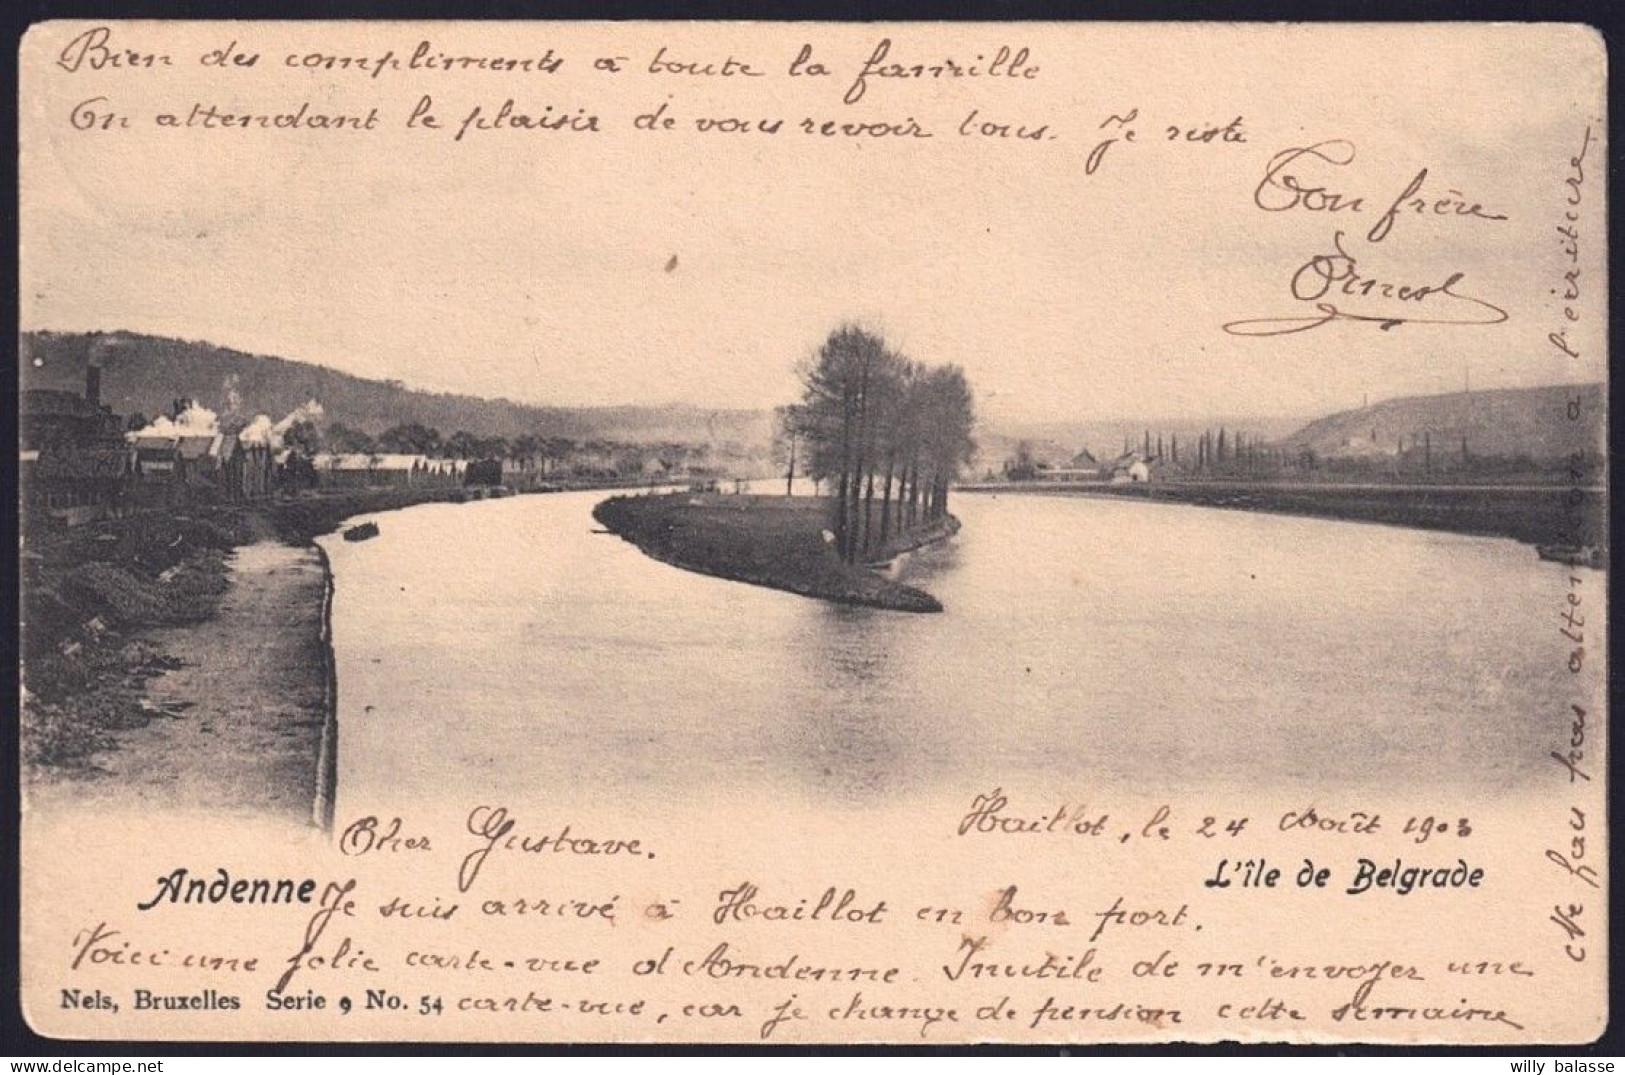 Haillot, le 24 Août 1903
Cher Gustave.
Andenne
L'île de Belgrade
Je suis arrivé à Haillot en bon port.
Voici une jolie carte-vue d'Andenne. Inutile de m'envoyer une
Nels, Bruxelles Serie 9 No. 54
carte-vue, car je change de pension cette semaine
Bien des compliments à toute la famille
En attendant le plaisir de vous revoir tous. Je reste
Ton frère
Ernest
Ne fau pas attention a l'ériture
willy balasse